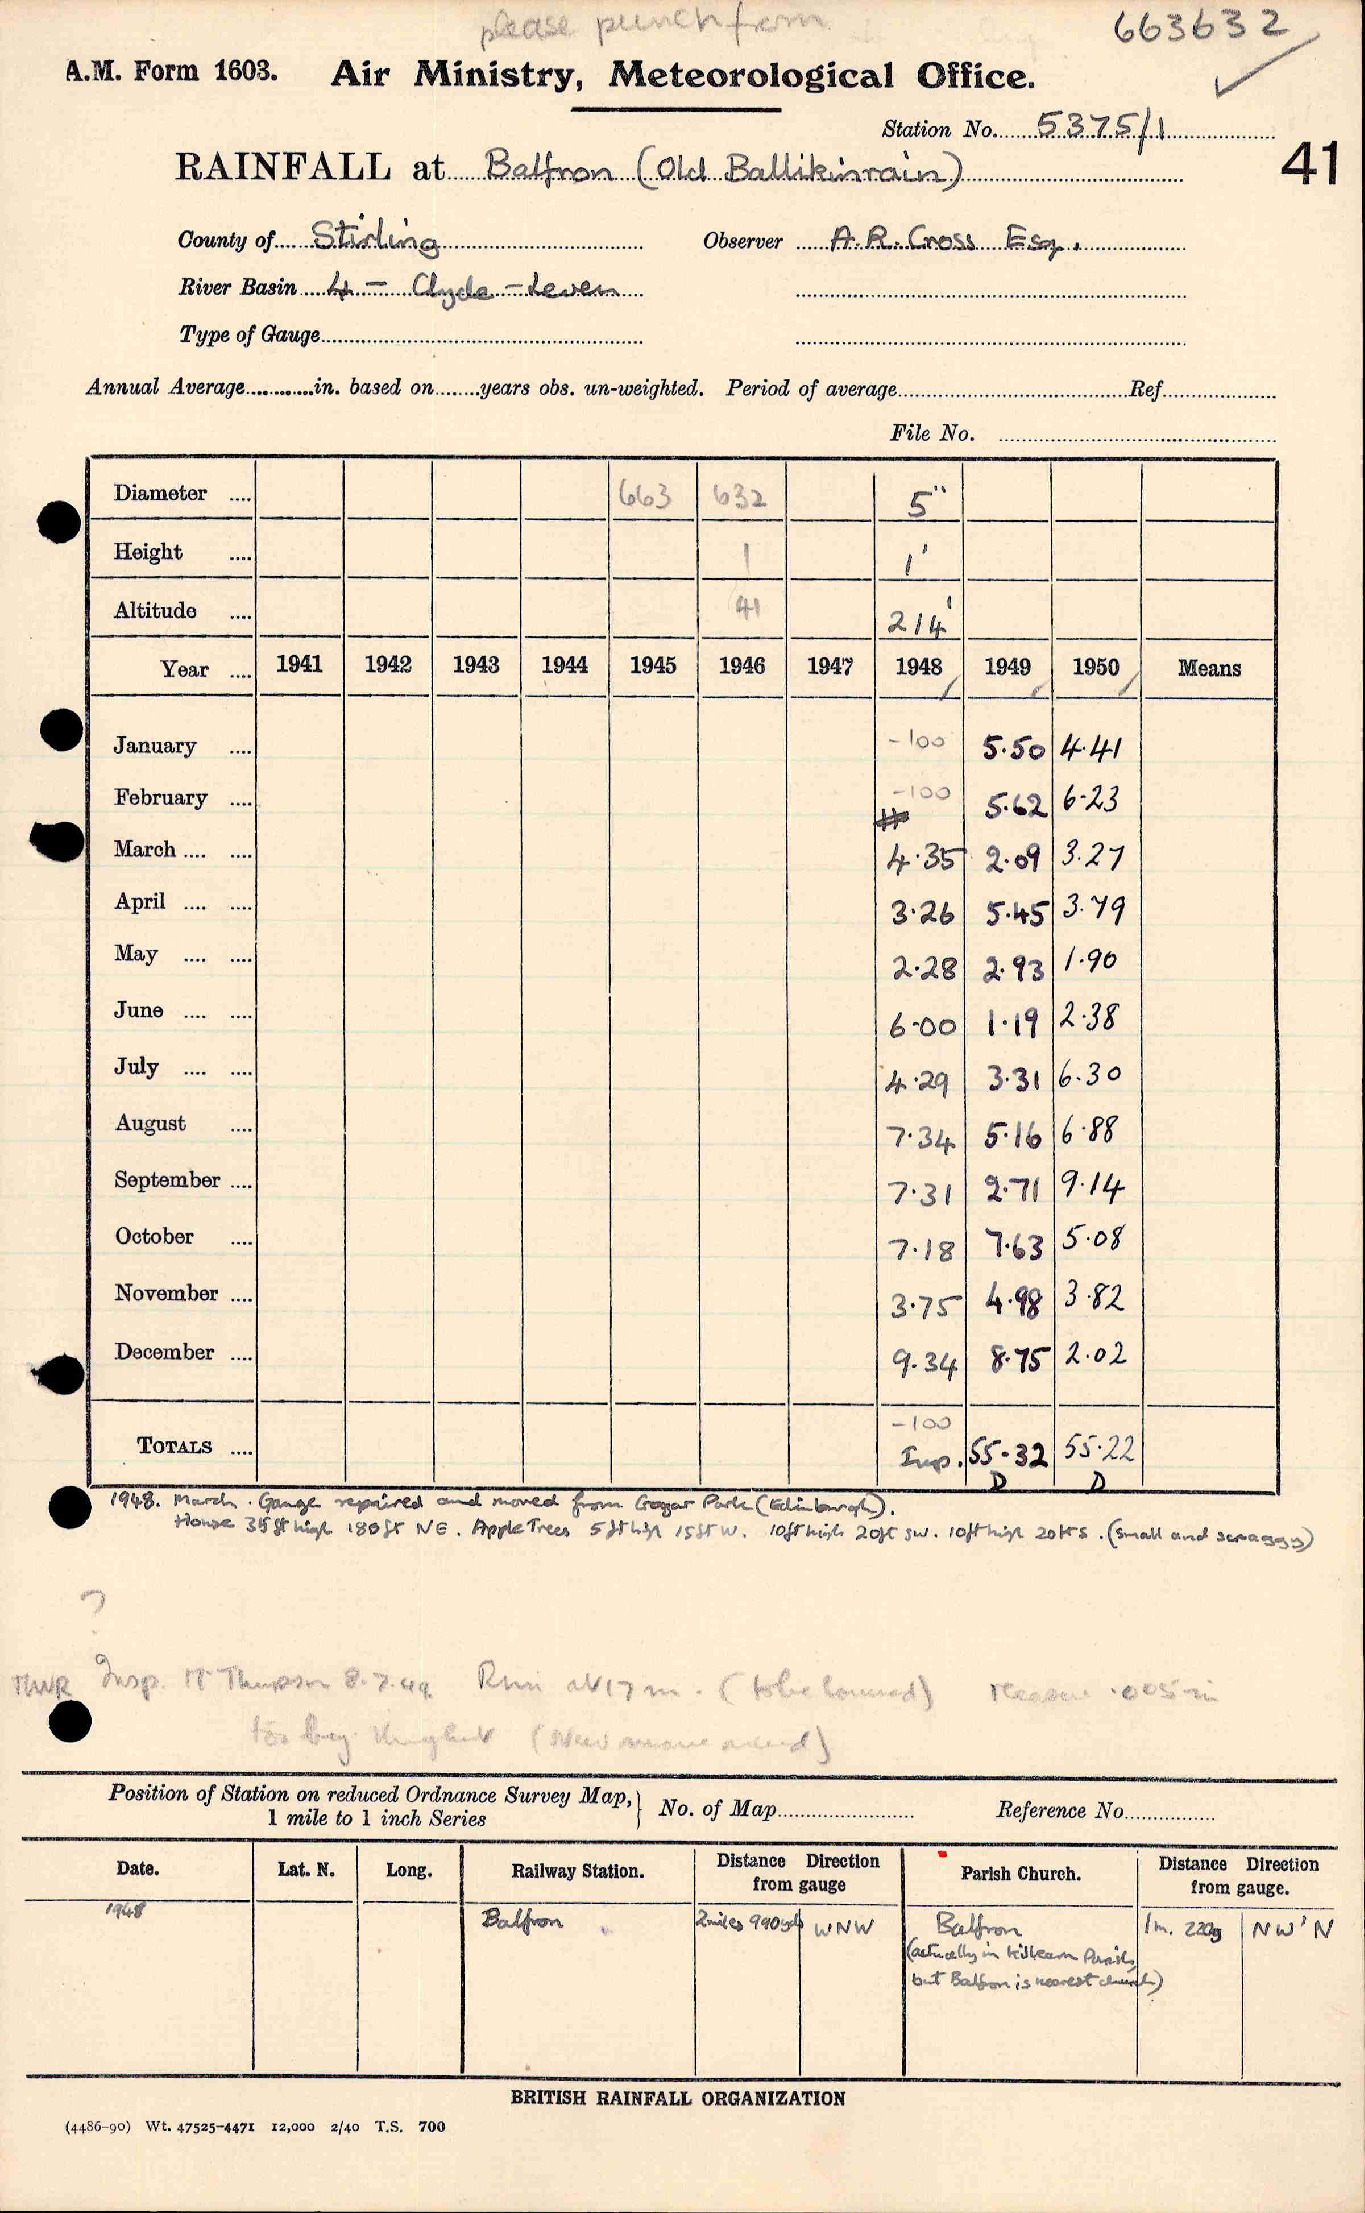 please punch from
663632
A.M. Form 1603. Air Ministry, Meteorological Office.
Station No. 5375/1
41
RAINFALL at Balfron (Old Ballikinrain)
County of Stirling Observer A.R. Cross Esq.
River Basin 4 - Clyde - Leven
Type of Gauge
Annual Average in. based on years obs. un-weighted. Period of average Ref
File No.
Diameter 663 632 5"
Height 1 1'
Altitude 41 214'
Year 1941 1942 1943 1944 1945 1946 1947 1948 1949 1950 Means
January -100 5.50 4.41
February -100 5.62 6.23
March 4.35 2.09 3.27
April 3.26 5.45 3.79
May 2.28 2.93 1.90
June 6.00 1.19 2.38
July 4.29 3.31 6.30
August 7.34 5.16 6.88
September 7.31 2.71 9.14
October 7.18 7.63 5.08
November 3.75 4.98 3.82
December 9.34 8.75 2.02
-100
TOTALS Imp. 55.32 55.22
D D
1948. March. Gauge repaired and moved from Gogar Park (Edinburgh).
House 35 ft high 180 ft NE. Apple Trees 5 ft high 15 ft W. 10 ft high 20 ft SW. 10 ft high 20 ft S. (small and scraggy)
?
Insp. 8.7.49 Rim at 17 in. (to be lowered) .005 in
too
Position of Station on reduced Ordnance Survey Map, } No. of Map Reference No.
1 mile to 1 inch Series
Date. Lat. N. Long. Railway Station. Distance Direction from gauge Parish Church. Distance Direction from gauge.
1948 Balfron 2 miles 990 yd WNW Balfron 1 m. 220 y NW'N
(actually in Killearn Parish,
but Balfron is nearest church)
BRITISH RAINFALL ORGANIZATION
(4486-90) Wt. 47525-4471 12,000 2/40 T.S. 700